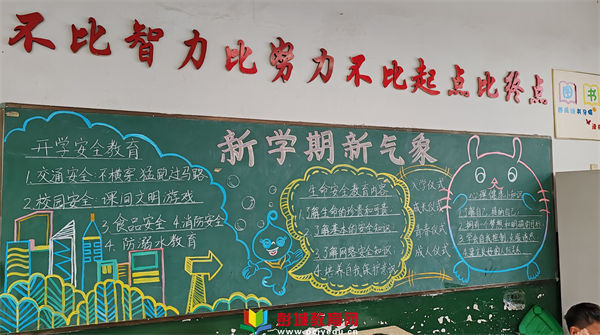 不比智力比努力不比起点比终点
图书
新学期新气象
开学安全教育
1.交通安全:不横穿、猛跑过马路
2.校园安全:课间文明游戏
3.食品安全 4.消防安全
4.防溺水教育
生命安全教育内容
1.了解生命的珍贵和可贵
2.了解基本的安全知识
3.了解网络安全知识
4.培养自我保护意识
入学仪式
成长仪式
青春仪式
成人仪式
心理健康小知识
1.了解自己
2.拥有个梦想和明确的目标
3.学会自我控制